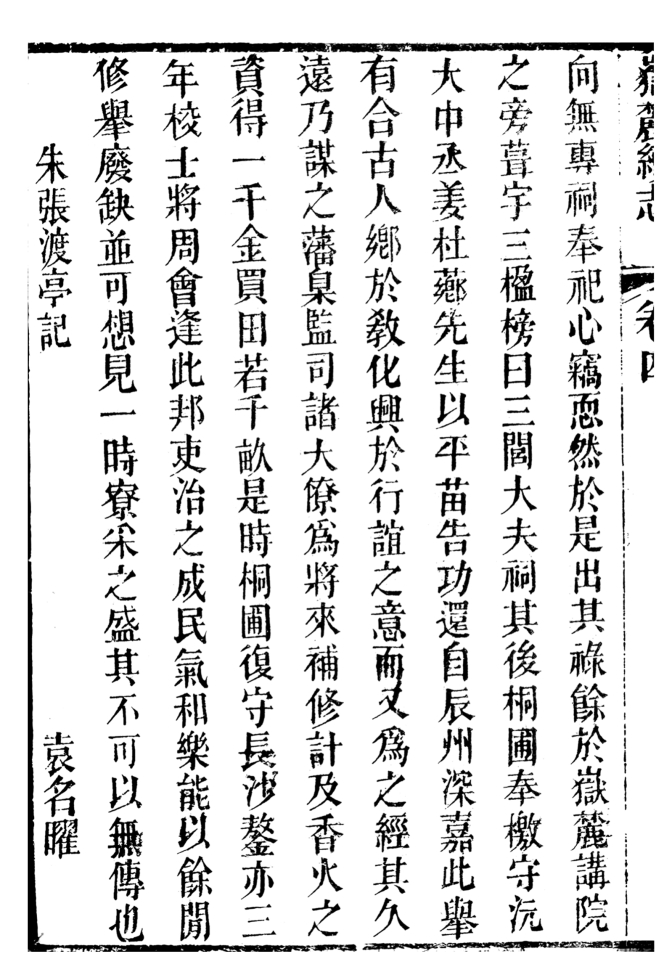 嶽麓續志 卷四
向無專祠奉祀心竊恧然於是出其祿餘於嶽麓講院
之旁葺宇三楹榜曰三閭大夫祠其後桐圃奉檄守沅
大中丞姜杜薌先生以平苗告功還自辰州深嘉此舉
有合古人鄉於教化興於行誼之意而又為之經其久
遠乃謀之藩臬監司諸大僚為將來補修計及香火之
資得一千金買田若干畝是時桐圃復守長沙鏊亦三
年校士將周會逢此邦吏治之成民氣和樂能以餘閒
修舉廢缺並可想見一時寮寀之盛其不可以無傳也
朱張渡亭記 袁名曜